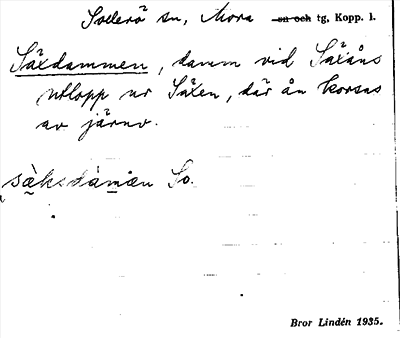 Sollerö sn, Mora sn och tg, Kopp. l.
Säxdammen, damm vid Säxåns
utlopp ur Säxen, där ån korsas
av järnv.
sàksdàmαn So.
Bror Lindén 1935.